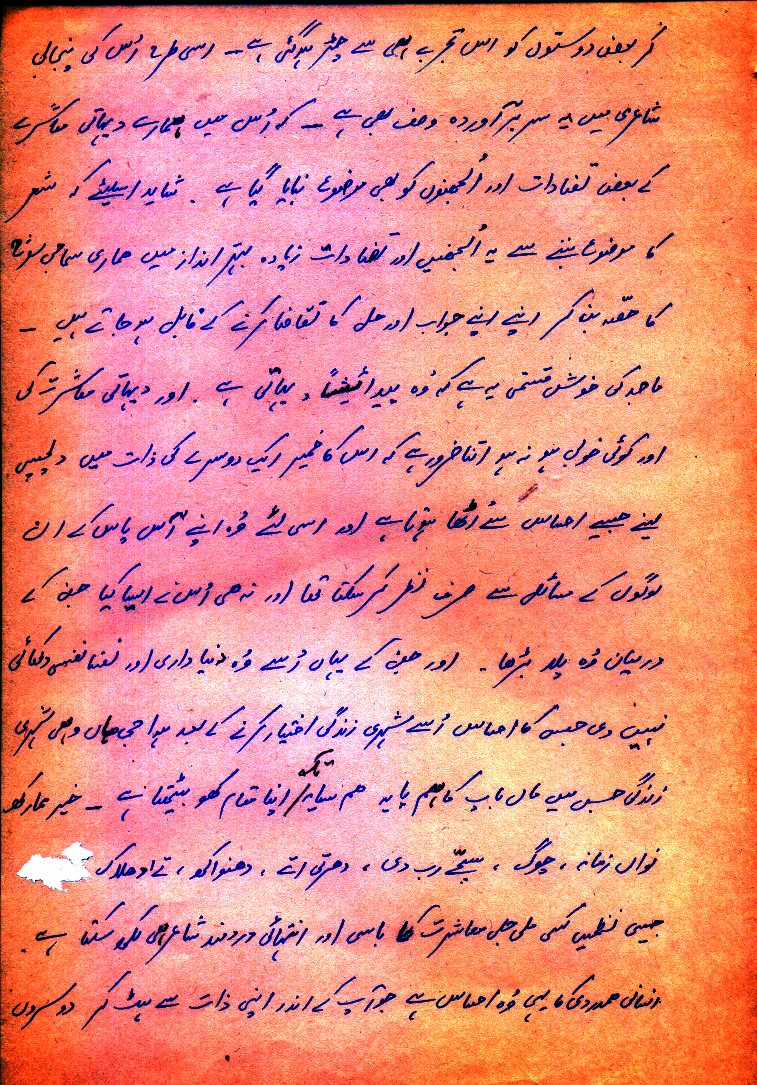 کر بعض دوستوں کو اس تجربے ہی سے چڑ ہو گئی ہے ۔ اسی طرح اُس کی پنجابی
شاعری میں یہ سر برآوردہ وصف بھی ہے ۔ کہ اُس میں ہمارے دیہاتی معاشرے
کے بعض تضادات اور اُلجھنوں کو بھی موضوع بنایا گیا ہے ۔ شاید اسلیئے کہ شعر
کا موضوع بننے سے یہ اُلجھنیں اور تضادات زیادہ بہتر انداز میں ہماری سماجی سوچ
کا حصّہ بن کر اپنے اپنے جواب اور حل کا تقاضا کرنے کے قابل ہو جاتے ہیں ۔
ماجد کی خوش قسمتی یہ ہے کہ وُہ پیدائیشاً دیہاتی ہے ۔ اور دیہاتی معاشرت کی
اور کوئی خوبی ہو نہ ہو اتنا ضرور ہے کہ اس کا خمیر ایک دوسرے کی ذات میں دلچسپی
لینے جیسے احساس سے اُٹھا ہوتا ہے اور اسی لئے وُہ اپنے آس پاس کے ان
لوگوں کے مسائل سے صرف نظر کر سکتا تھا اور نہ ہی اُس نے ایسا کیا جن کے
درمیان وُہ پلا بڑھا ۔ اور جن کے یہاں اُسے وُہ دنیا داری اور نفسا نفسی دکھائی
نہیں دی جس کا احساس اُسے شہری زندگی اختیار کرنے کے بعد ہوا جی ہاں وہی شہری
زندگی جس میں ماں باپ کا ہم پایہ ہم سایہ تک اپنا مقام کھو بیٹھتا ہے ۔ خیر
نواں زمانہ ، چوگ ، سچّے رب دی ، دھرتی اتے ،
جیسی نظمیں کسی ملی جلی معاشرت کا باسی اور انتہائی دردمند شاعر ہی لکھ سکتا ہے ۔
انسانی ہمدردی کا یہی وُہ احساس ہے جو آپ کے اندر اپنی ذات سے ہٹ کر دوسروں